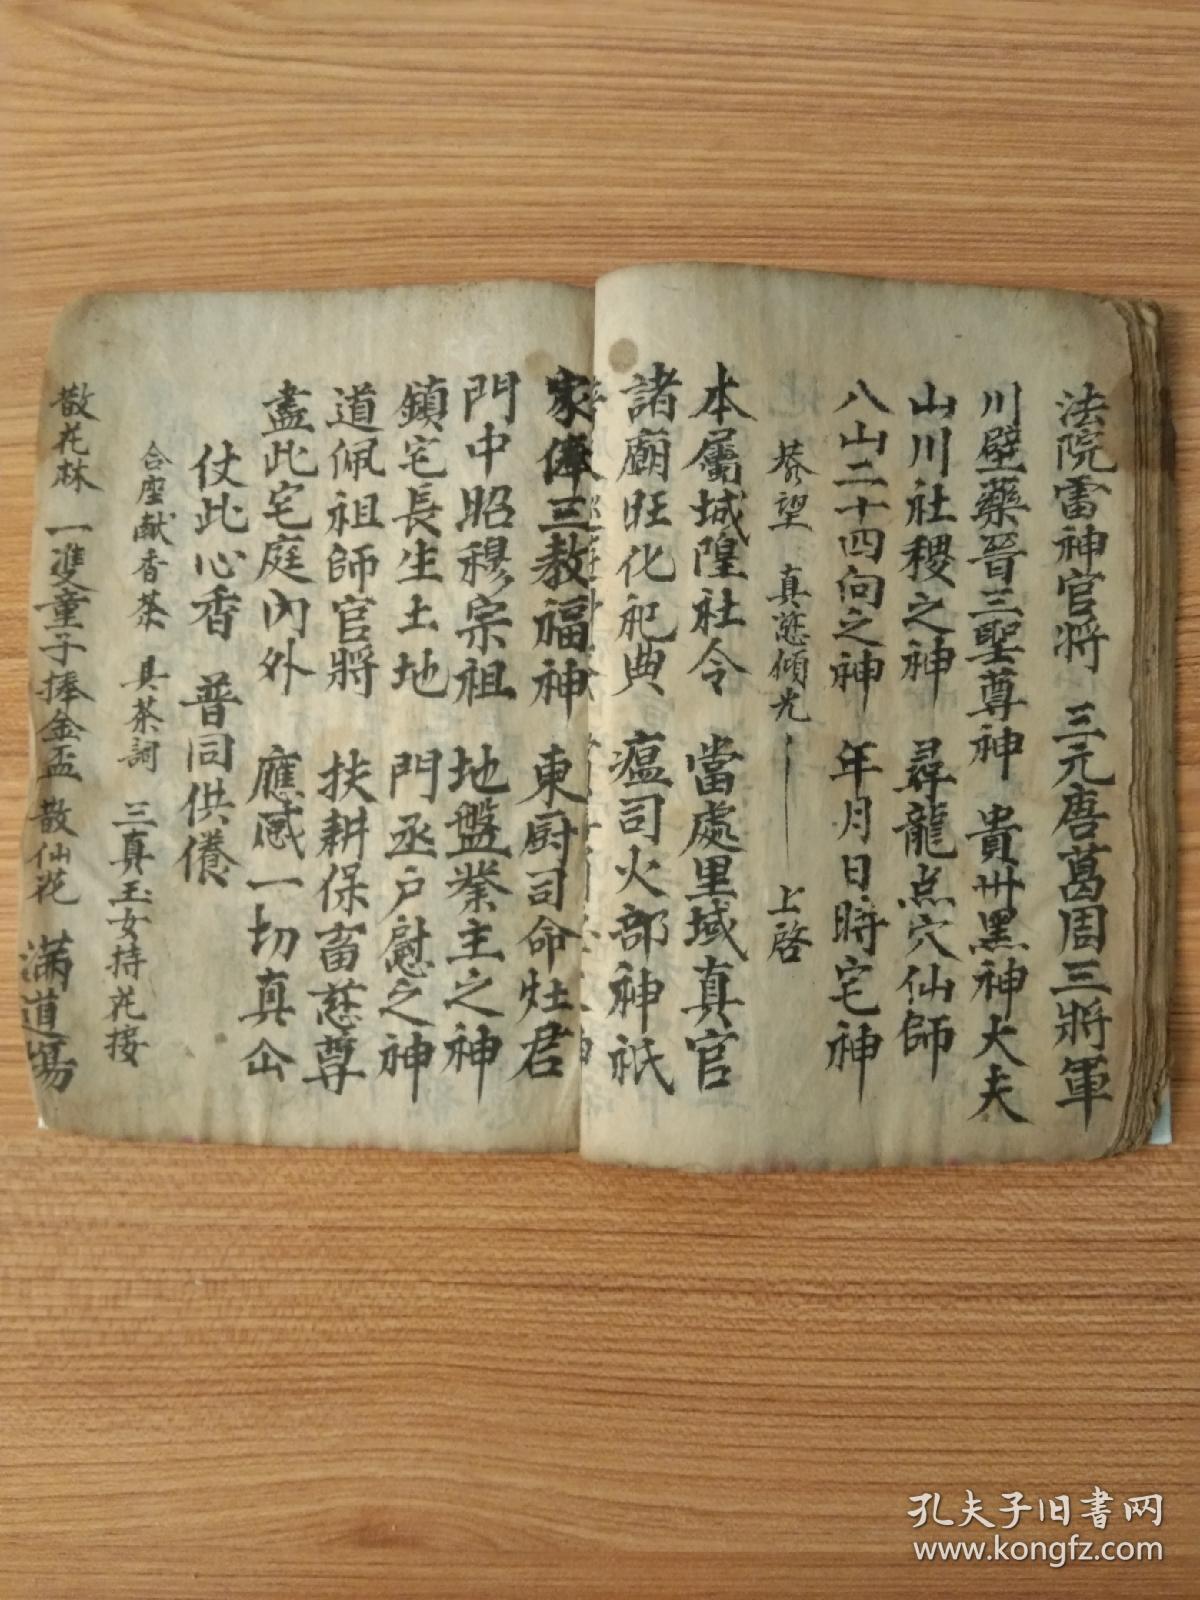 法院雷神官将　三元唐葛周三將軍
川壁藥晉三聖尊神　貴州黑神大夫
山川社稷之神　尋龍点穴仙師
八山二十四向之神　年月日時宅神
恭望　真慈傾光　上啓
本屬城隍社令　當處里域真官
諸廟旺化祀典　瘟司火部神祇
家俸三教福神　東厨司命灶君
門中昭穆宗祖　地盤業主之神
鎮宅長生土地　門丞户慰之神
道佩祖師官將　扶耕保畜慈尊
盡此宅庭內外　應感一切真仚
仗此心香　普同供養
合座献香茶　具茶詞　三真玉女持花接
散花林　一雙童子捧金盃　散仙花　滿道場
孔夫子旧书网
www.kongfz.com